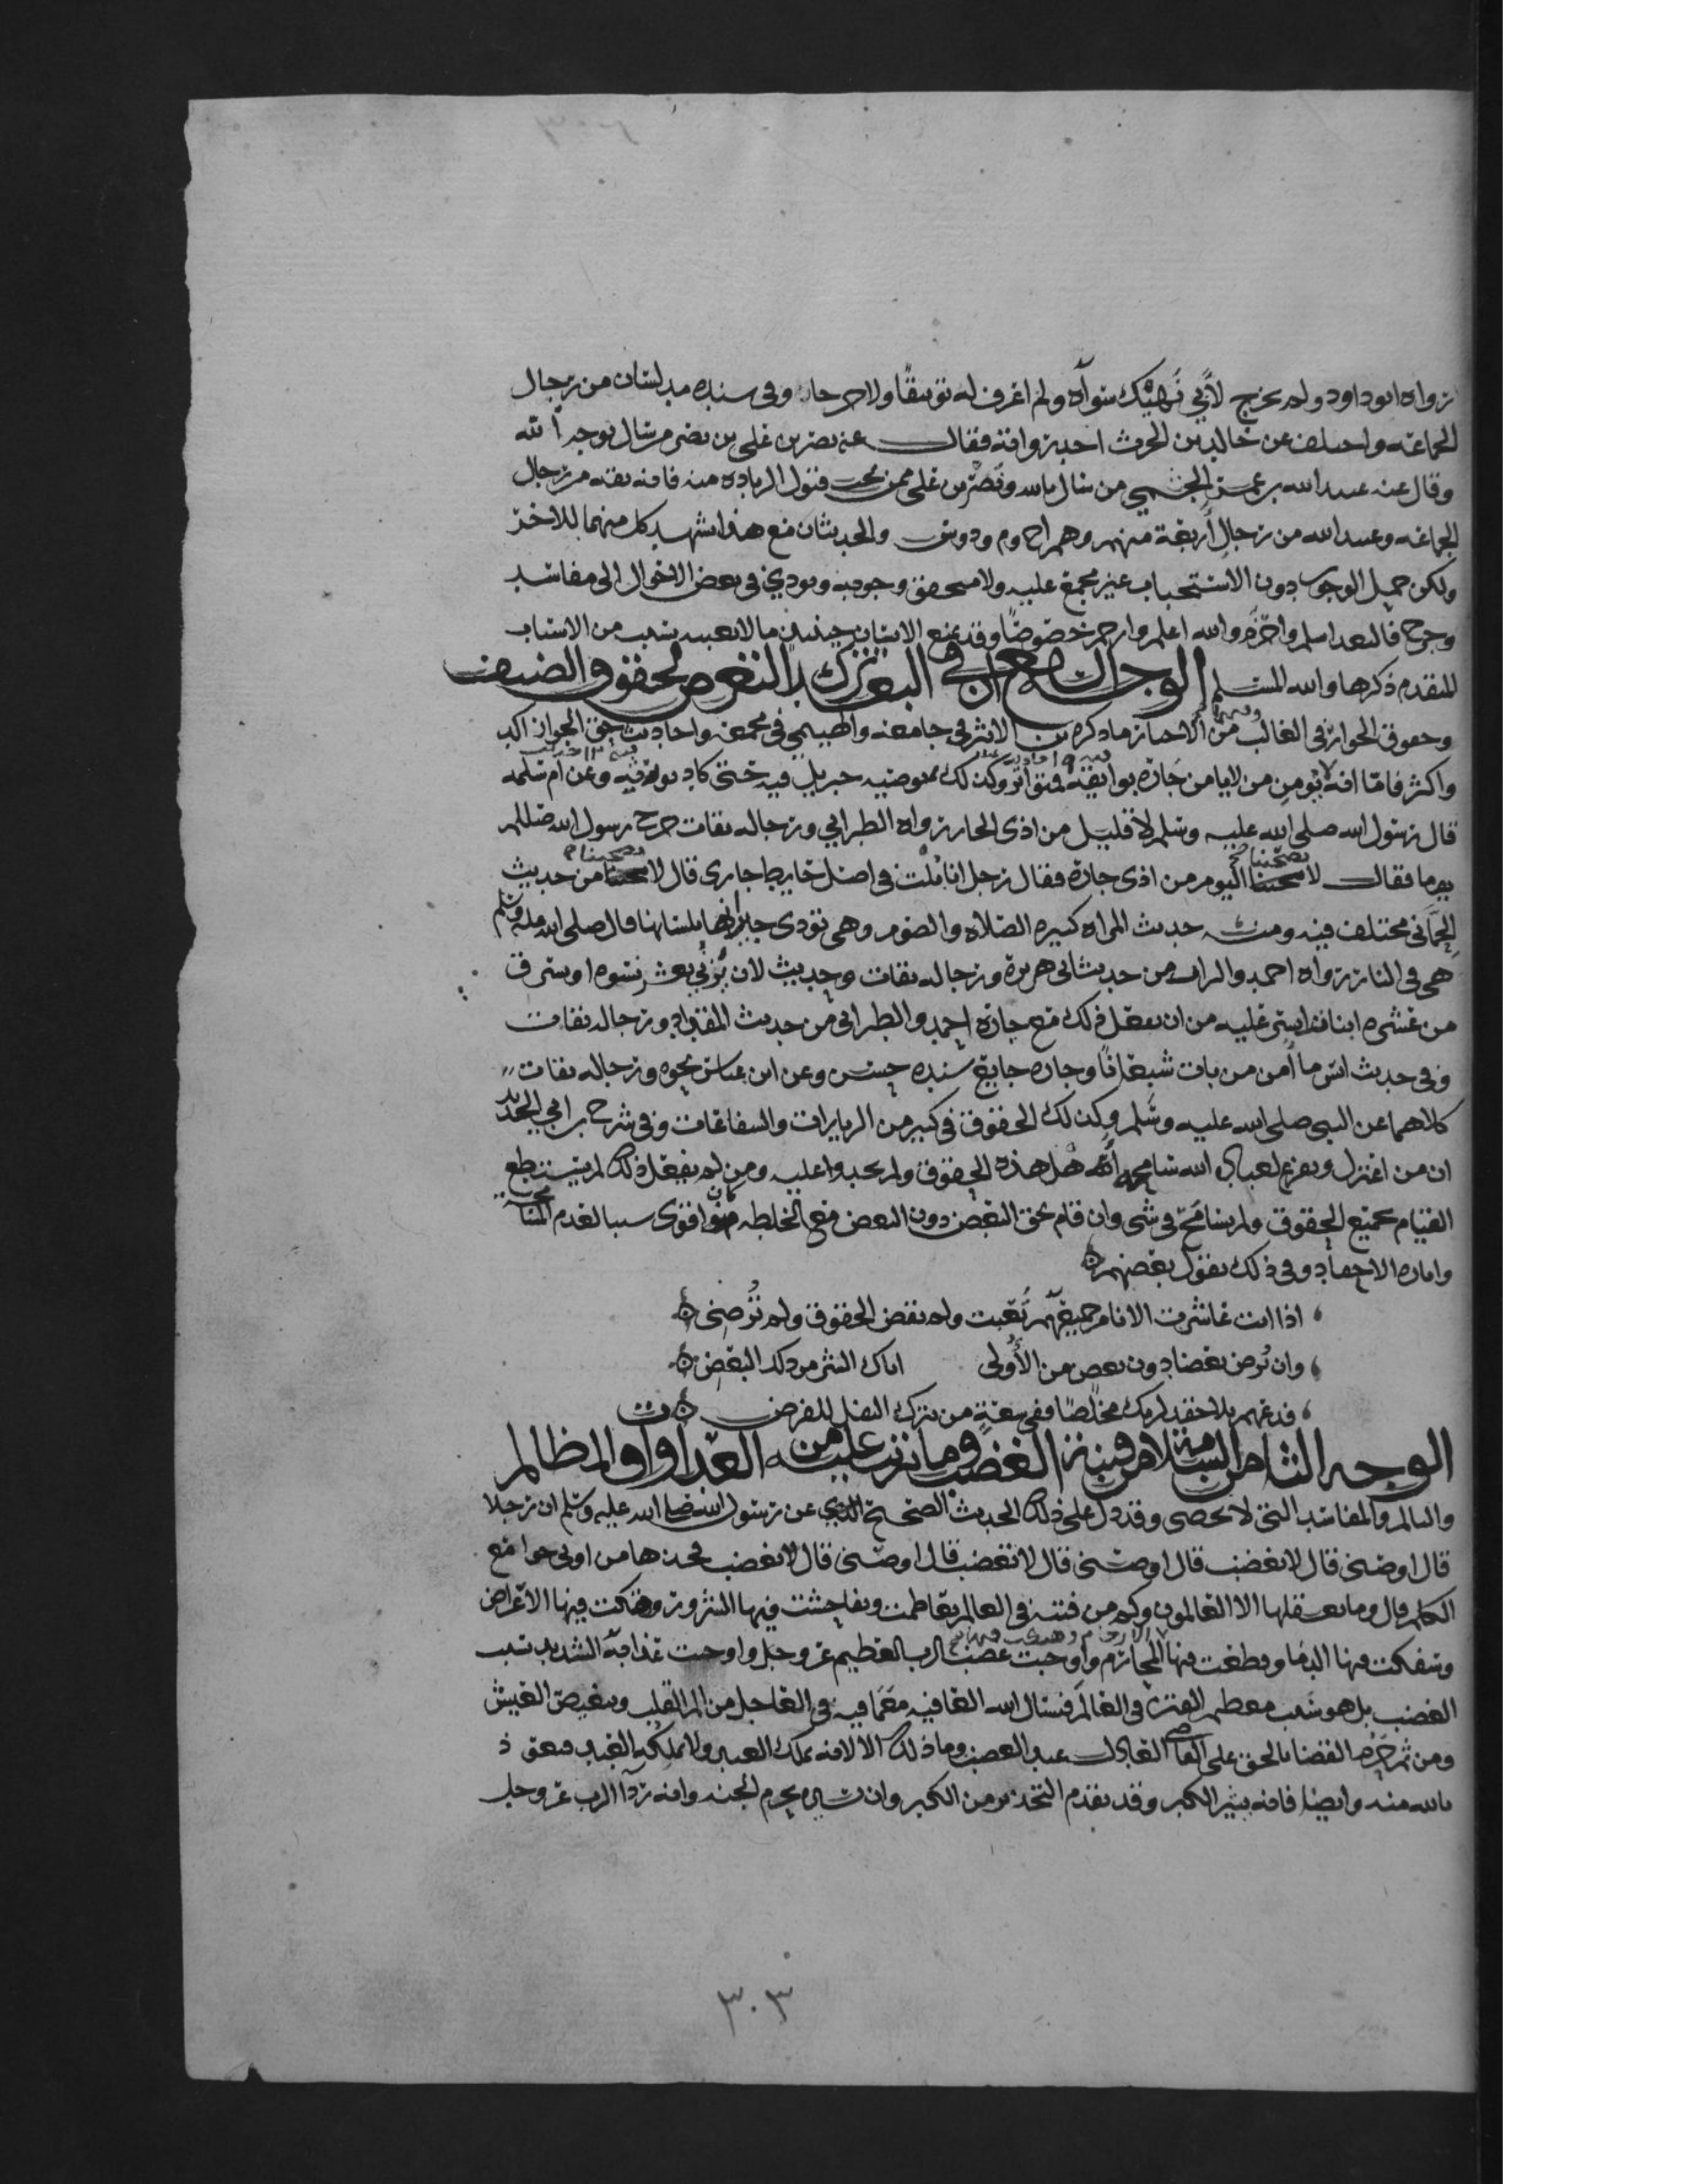 رواه ابو داود ولم يخرج لأبي نهيك سواه ولم اعرف له توثيقا ولا جرحا وفي سنده مدلسان من رجال
الجماعة واختلف عن خالد بن الحرث احد رواته فقال عنه نصر بن علي من سال بوجه الله
وقال عنه عبيد الله بن عمر الجشمي من سال بالله ونصر بن علي ممن يجب قبول الزيادة منه فانه ثقة من رجال
الجماعة وعبيد الله من رجال أربعة منهم وهم خ م و د و س والحديثان مع هذا يشهد كل منهما للاخر
ولكن حمل الوجوب دون الاستحباب غير مجمع عليه ولا متحقق وجوبه ويودي في بعض الاحوال الى مفاسد
وحرج فالبعد اسلم واحزم والله اعلم وارحم خصوصا وقد يمنع الانسان حينئذ ما لا يعيبه بسبب من الاسباب
المتقدم ذكرها والله المسلم الوجه السابع ان في البعد ترك التعرض لحقوق الضيف
وحقوق الجوار في الغالب من الاخبار ما ذكره بن الاثير في جامعه والهيثمي في مجمعه واحاديث حق الجوار اكد
واكثر فاما انه لا يومن من لا يامن جاره بوايقه فمتواتر وكذلك توصية جبريل فيه حتى كاد يورثه وعن ام سلمة
قال رسول الله صلى الله عليه وسلم لا قليل من اذى الجار رواه الطبراني ورجاله ثقات خرج رسول الله صللم
يوما فقال لا يصحبنا اليوم من اذى جاره فقال رجل انا بُلْت في اصل حايط جاري قال لا تصحبنا من حديث
الحِمّاني مختلف فيه ومنه حديث المراه كثيره الصلاه والصوم وهي تؤذي جيرانها بلسانها قال صلى الله عليه وسلم
هي في النار رواه احمد والبزار من حديث ابي هريرة ورجاله ثقات وحديث لان يزني بعشر نسوه او يسرق
من عشره ابيات ايسر عليه من ان يفعل ذلك مع جاره احمد والطبراني من حديث المقداد ورجاله ثقات
وفي حديث انس ما آمن من بات شبعانا وجاره جايع سنده حسن وعن ابن عباس نحوه ورجاله ثقات
كلاهما عن النبي صلى الله عليه وسلم وكذلك الحقوق في كثير من الزيارات والشفاعات وفي شرح بن ابي الحديد
ان من اعتزل وتفرغ لعبادة الله سامحه أهل هذه الحقوق ولم يجدوا عليه ومن لم يفعل ذلك لم يستطع
القيام بجميع الحقوق ولم يسامح في شي وان قام بحق البعض دون البعض مع الخلطه كان اقوى سببا لعدم المسامحة
واثارة الاحقاد وفي ذلك يقول بعضهم
اذا انت عاشرت الانام جميعهم تعبت ولم تقض الحقوق ولم تُرضي
وان تُرض بعضا دون بعض من الأولى اتاك الشر من ذلك البعض
فدعهم بلا حقد لربك مخلصا ففي سعة من يترك النفل للفرض
الوجه الثامن السلامة من فتنة الغضب وما يترتب عليه من العداوات والمظالم
والمآلم والمفاسد التي لا تحصى وقد دل على ذلك الحديث الصحيح عن رسول الله صلى الله عليه وسلم ان رجلا
قال اوصني قال لا تغضب قال اوصني قال لا تغضب قال اوصني قال لا تغضب فخذها من اوتي جوامع
الكلم قال وما يعقلها الا العالمون وكم من فتنة في العالم تعاظمت وتفاحشت فيها الشرور وهتكت فيها الاعراض
وسفكت فيها الدما وقطعت فيها المحارم واوجبت غضب الرب العظيم عز وجل واوجبت عذابه الشديد بسبب
الغضب بل هو سبب معظم الفتن في العالم فنسال الله العافيه مع ما فيه في العاجل من الم القلب وتنغيص العيش
ومن ثم حَرُم القضا بالحق على القاضي العادل عند الغضب وما ذلك الا لانه يملك العبد ولا يملكه العبد فنعوذ
بالله منه وايضا فانه يثير الكبر وقد تقدم التحذير من الكبر وان يحرم الجنه وانه ردآ الرب عز وجل
٣٠٣